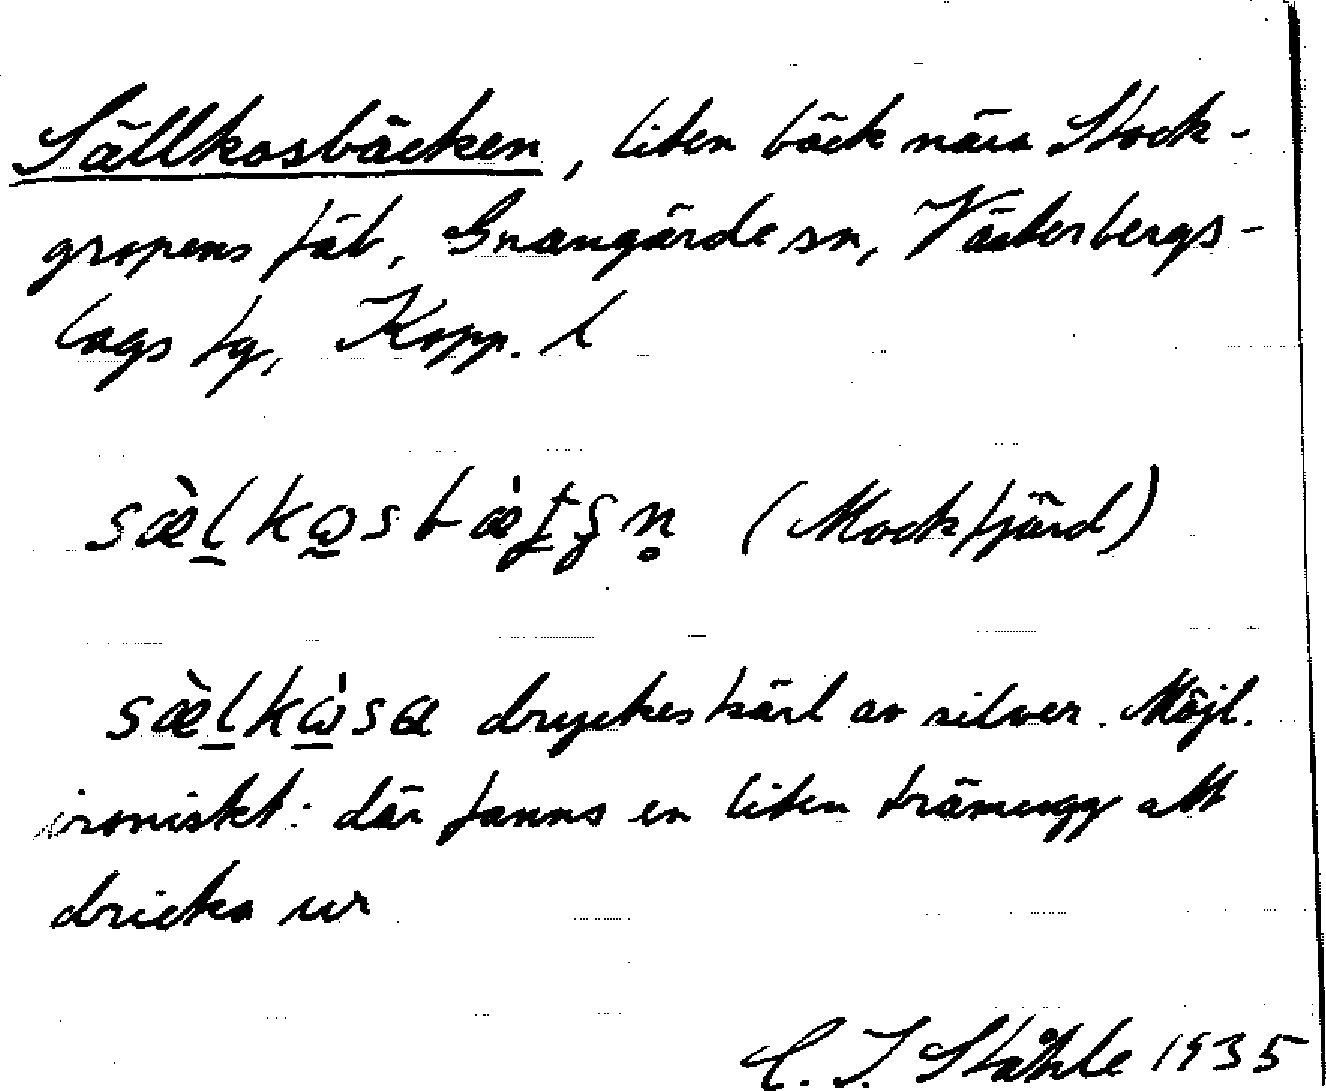 Sällkosbäcken, liten bäck nära Stock-
gropens fäb, Grangärde sn, Västerbergs-
lags tg, Kopp. l
sæ̀lkωsbæ̀ʈʂn̥ (Mockfjärd)
sæ̀lkὼsa dryckeskärl av silver. Möjl.
ironiskt: där fanns en liten trämugg att
dricka ur
C. I. Ståhle 1935